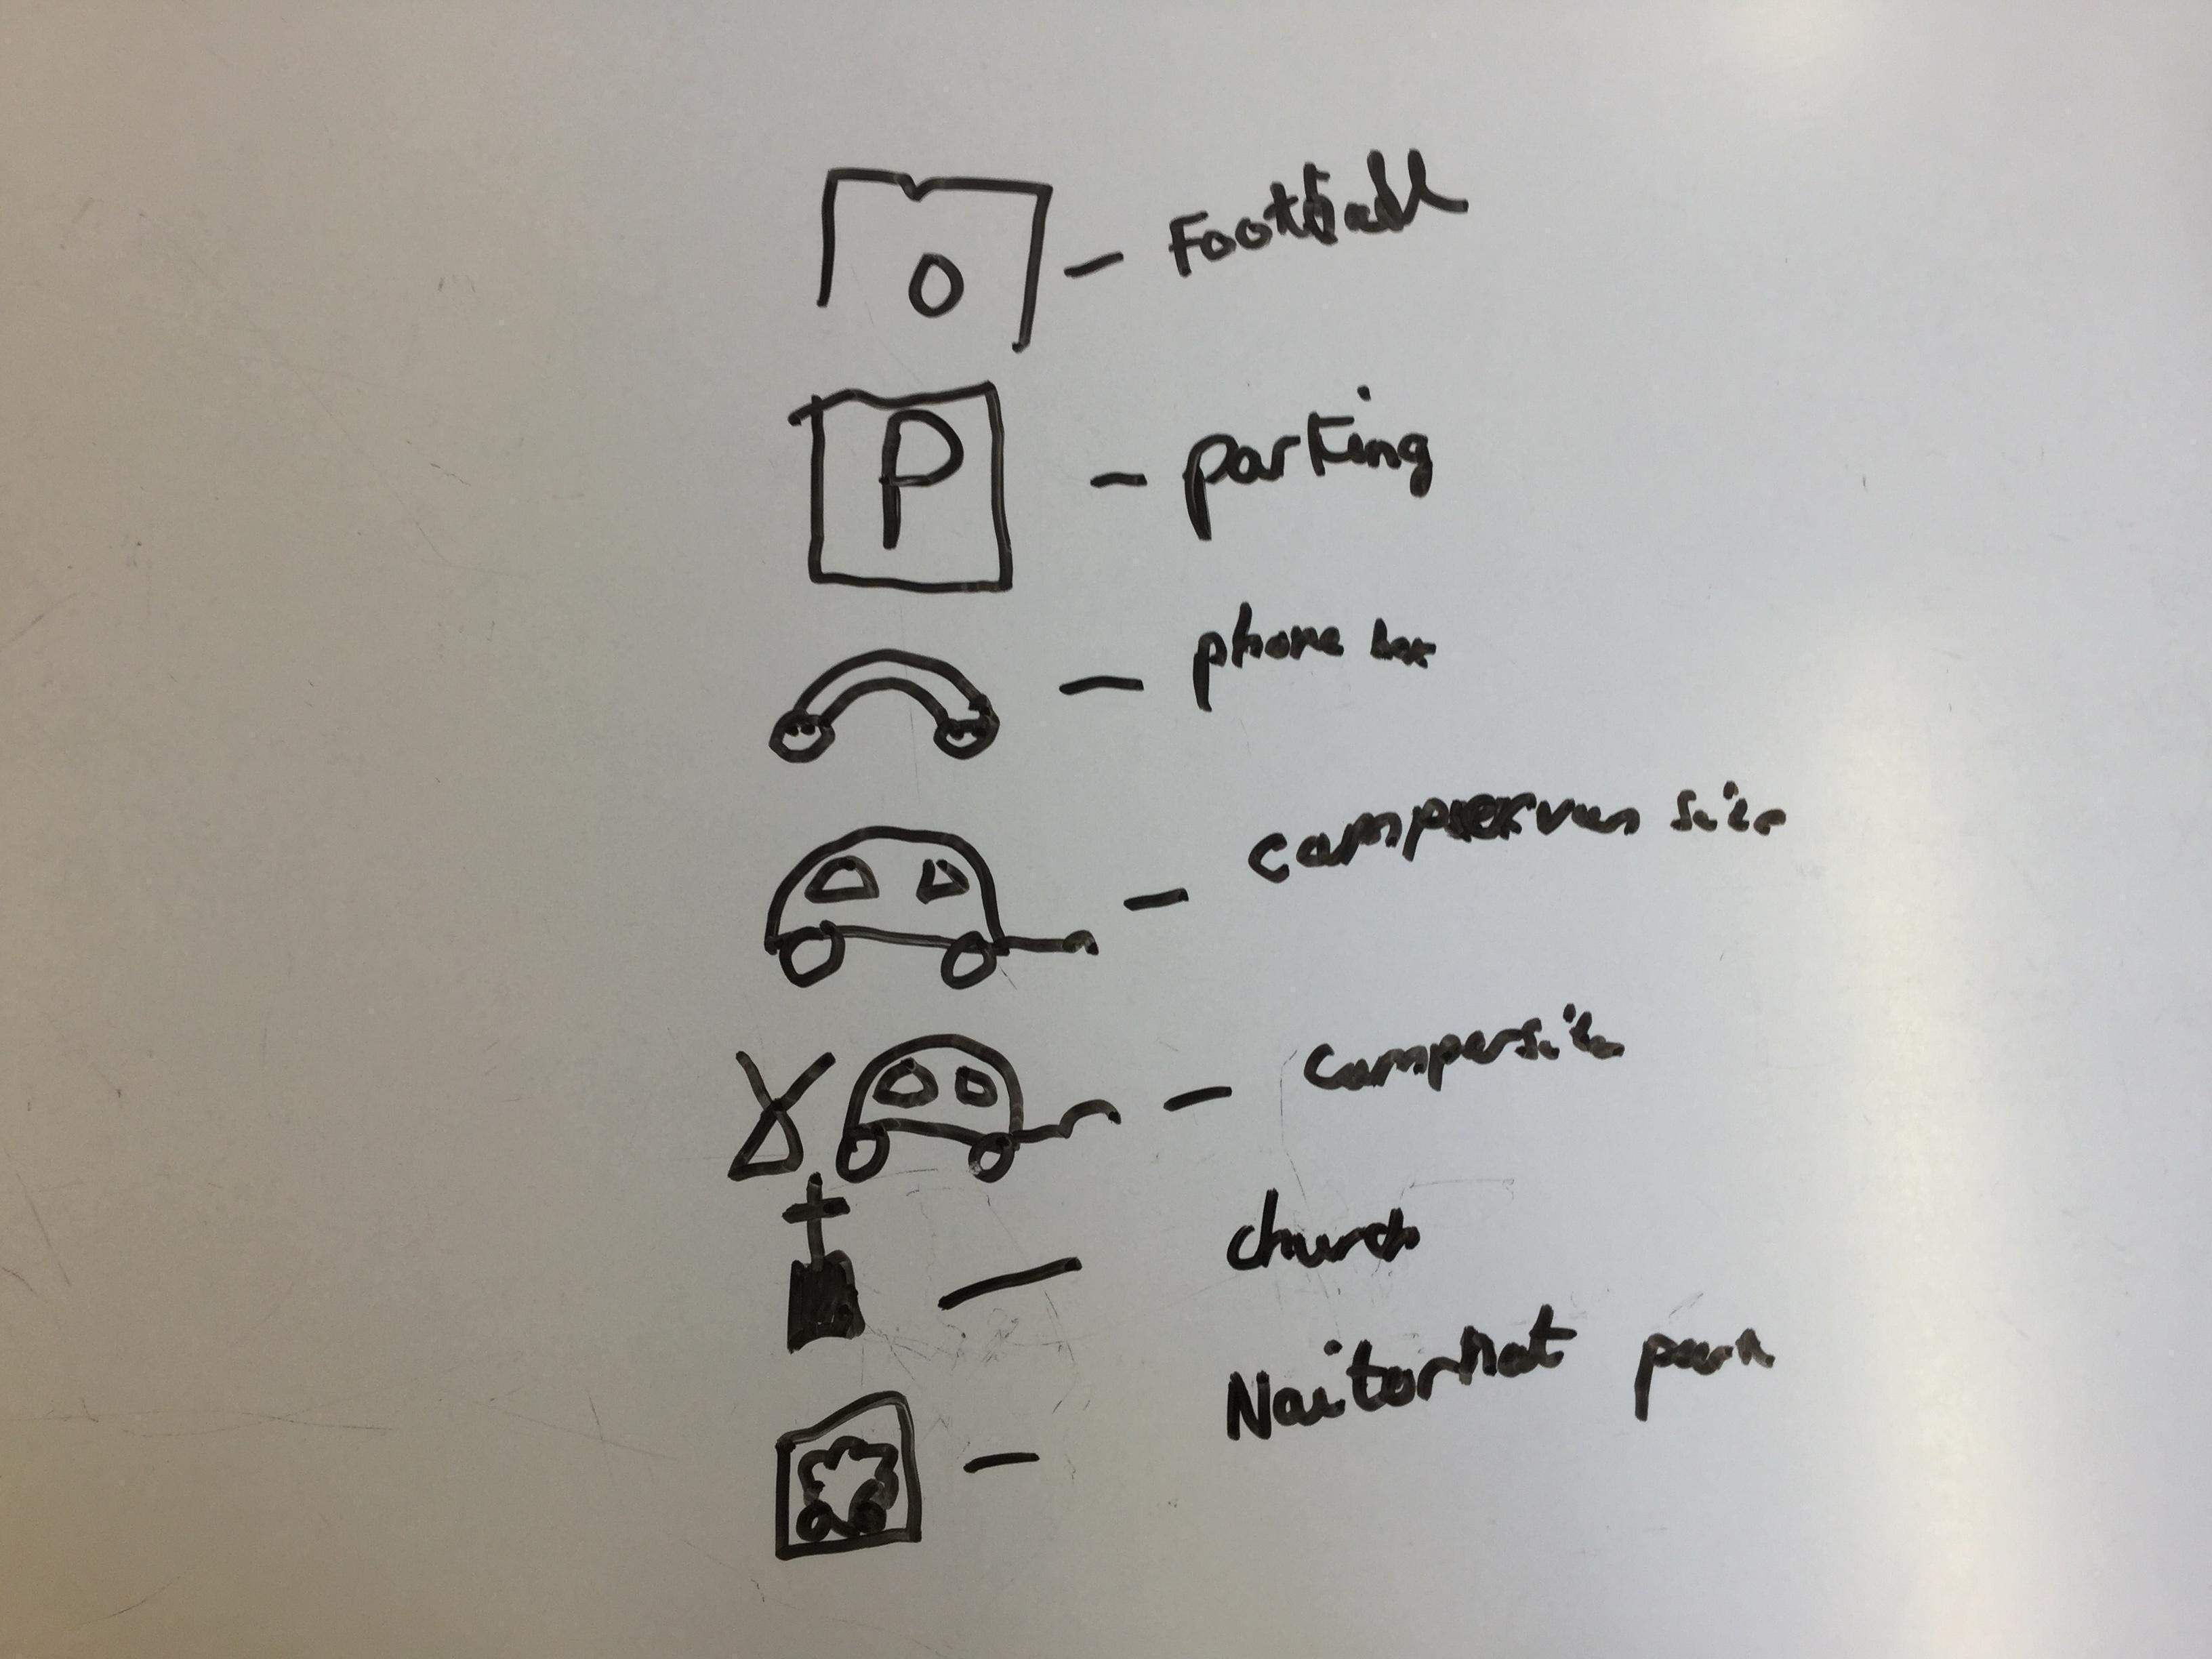 O - Football
P - parking
- phone box
- campervan site
- campersite
- church
- Naitornat park